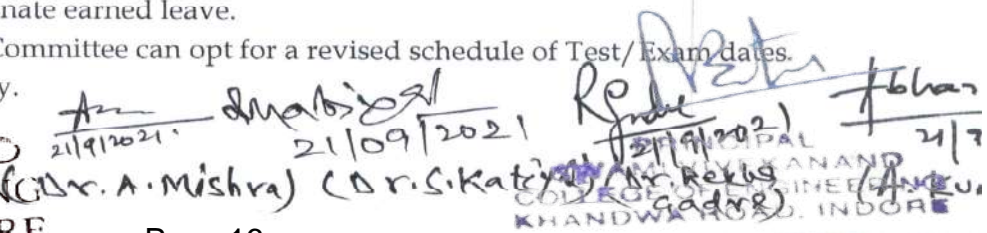 nate earned leave.
Committee can opt for a revised schedule of Test/Exam dates.
y.
21/9/2021. 21/09/2021 21/9/2021 21/
PRINCIPAL
(Dr. A. Mishra) (Dr. S. Katiyal) (Dr. Rekha Gadre) (A. Kum
SWAMI VIVEKANAND
COLLEGE OF ENGINEERING
KHANDWA ROAD, INDORE
RE
Page 10